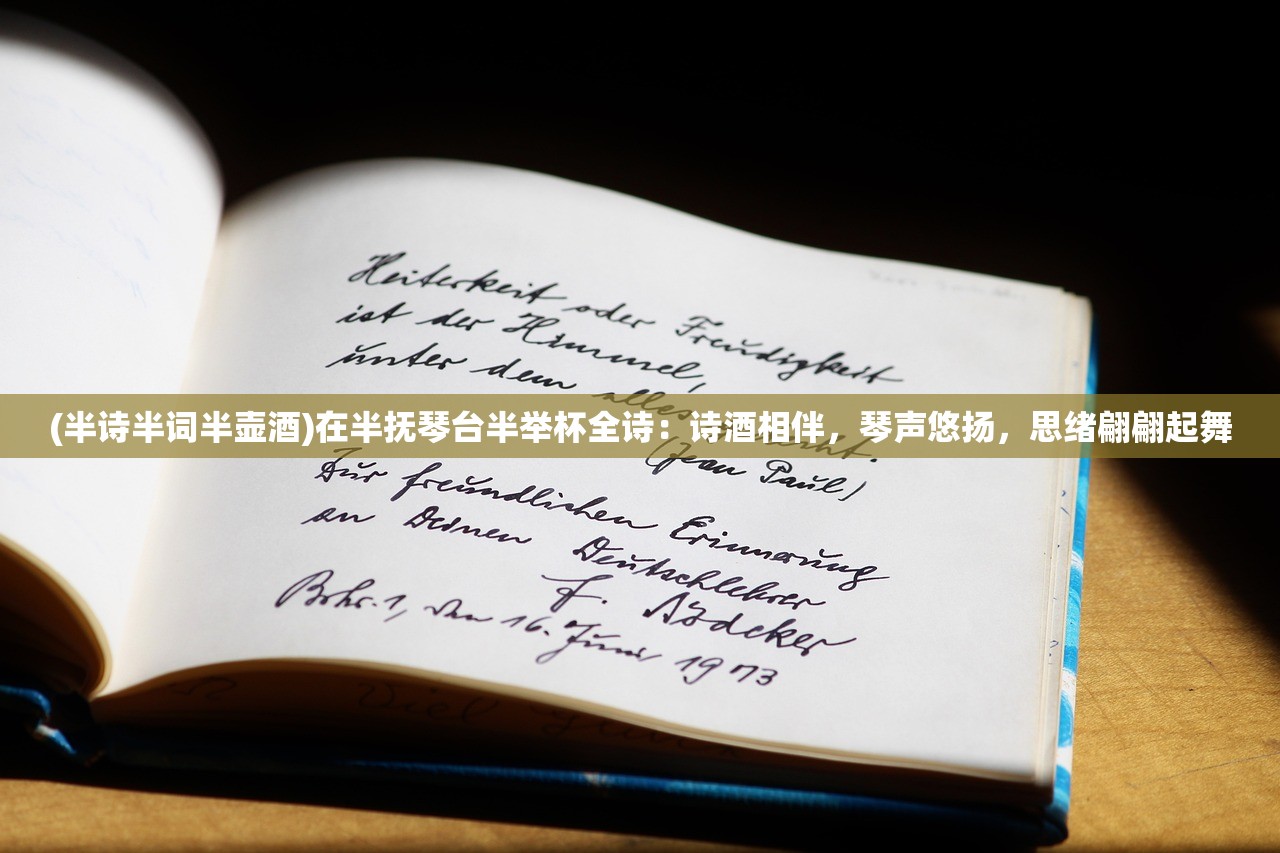 Heiterkeit oder Freudigkeit
ist der Himmel,
unter dem alles
(半诗半词半壶酒)在半抚琴台半举杯全诗：诗酒相伴，琴声悠扬，思绪翩翩起舞
(Jean Paul)
Zur freundlichen Erinnerung
an Deinen Deutschlehrer
F.
den 16. Juni 1973